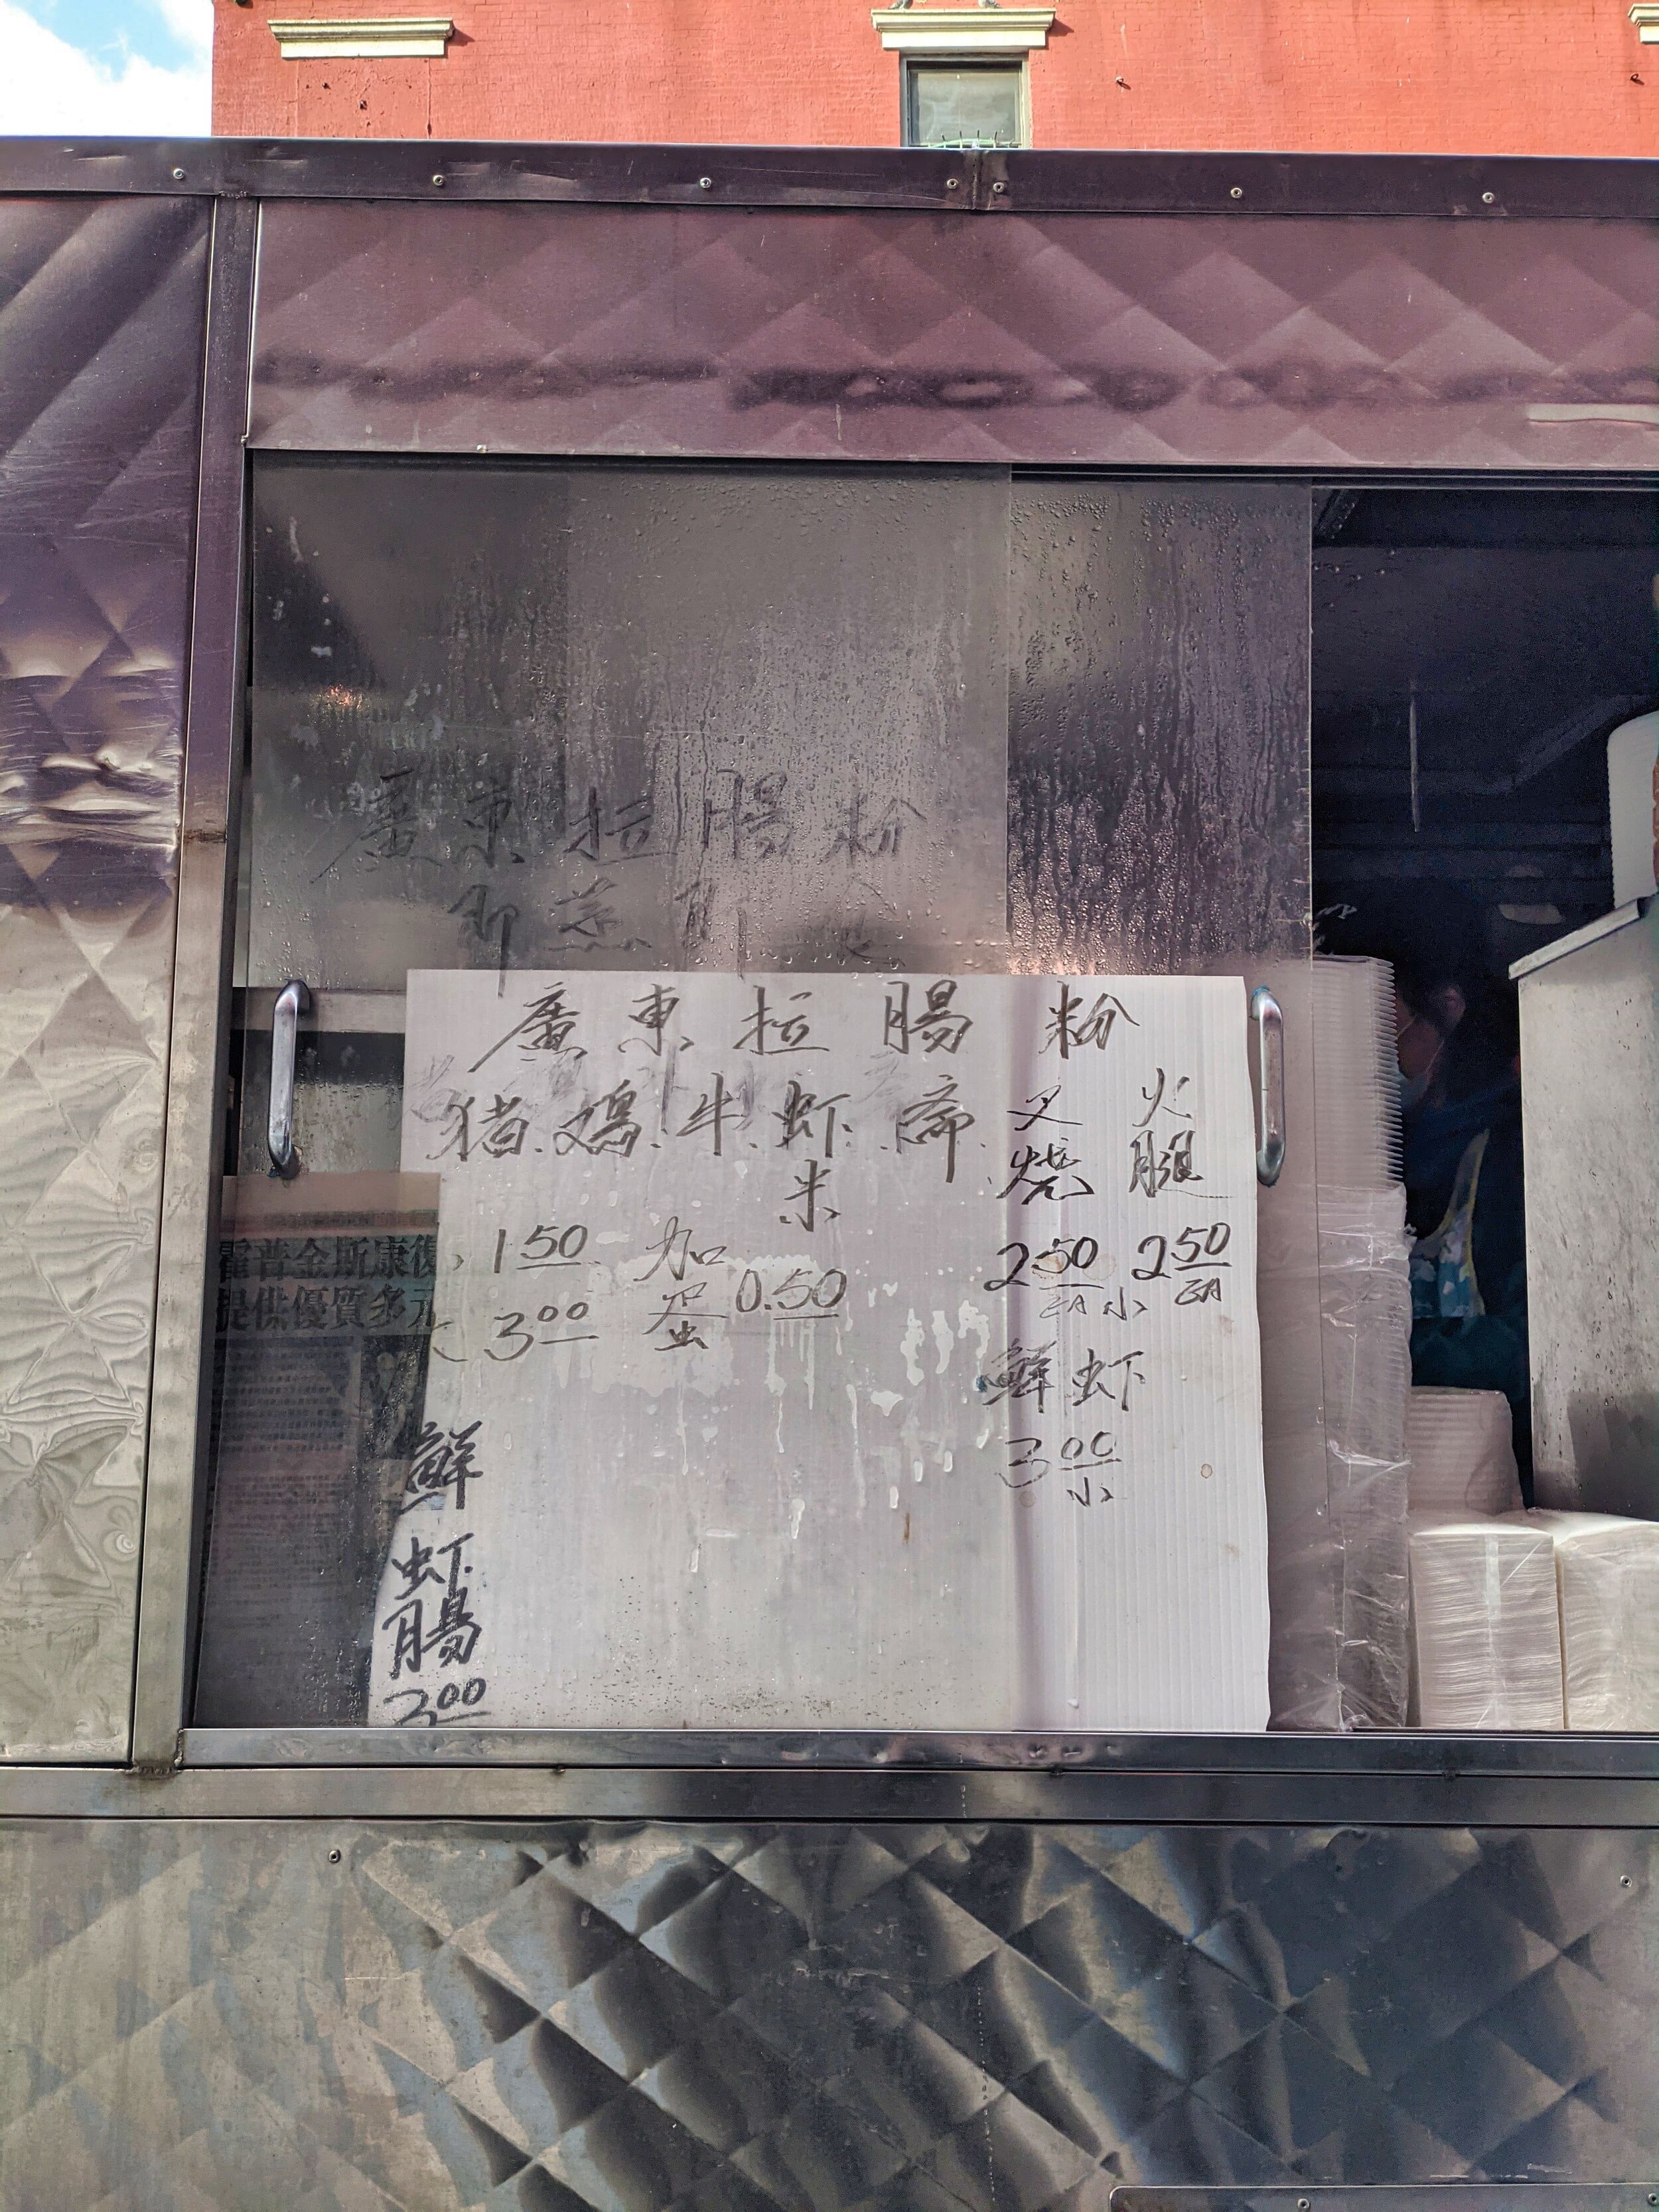 廣東拉腸粉
即蒸即
廣東拉腸粉
猪.鸡.牛.虾.斋.
米
叉烧
火腿
小 1 50
加蛋 0.50
3 00
2 50 EA 小
2 50 EA
鲜虾
3 00 小
霍普金斯康復
提供優質多元
鮮虾腸
3 00